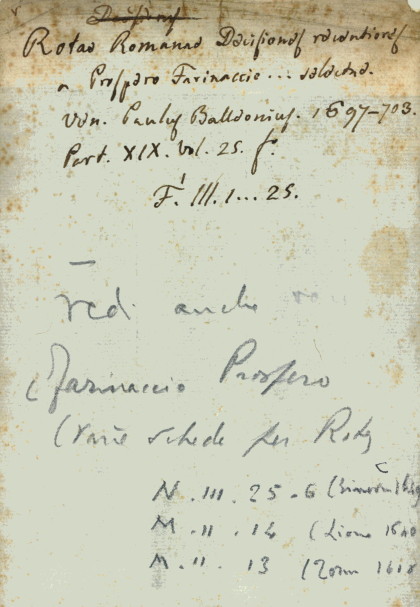 Rotae Romanae Decisiones recentiores
a Prospero Farinaccio... selectae.
Ven. Paulus Balleonius. 1697-703.
Part. XIX. Vol. 25. f.
F. III. 1... 25.
Vedi anche
Farinaccio Prospero
(varie schede per Rota
N. III. 25. 6
M. II. 14 (Lione
M. II. 13